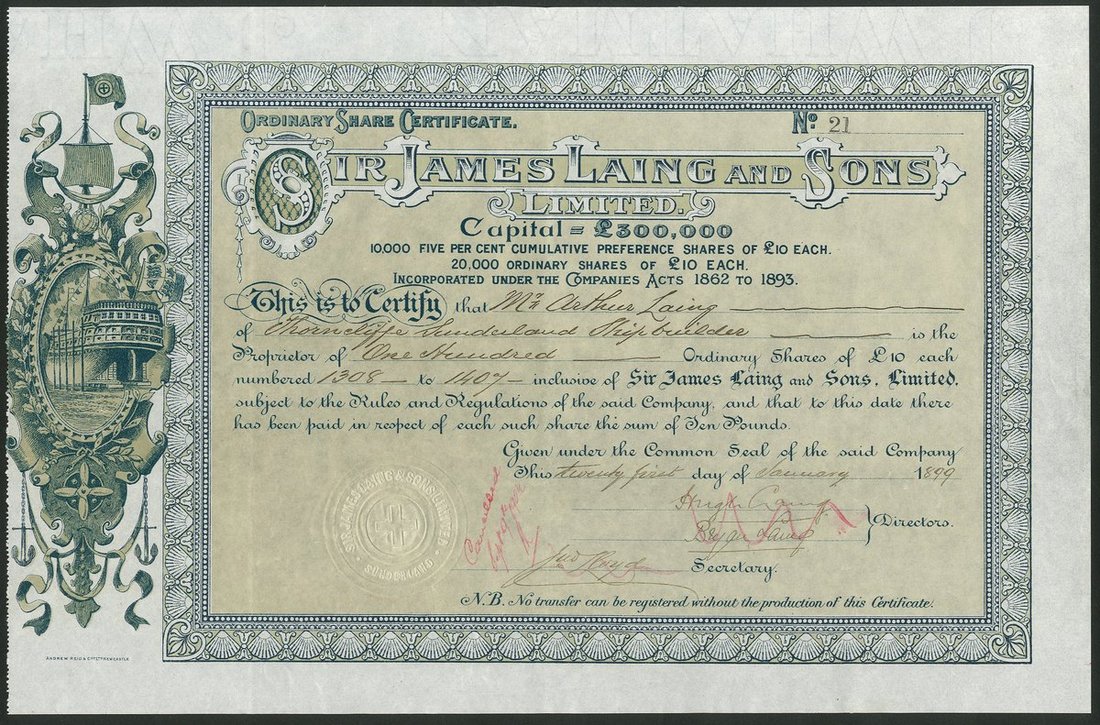 ORDINARY SHARE CERTIFICATE.
No 21
SIR JAMES LAING AND SONS
LIMITED.
Capital = £300,000
10,000 FIVE PER CENT CUMULATIVE PREFERENCE SHARES OF £10 EACH.
20,000 ORDINARY SHARES OF £10 EACH.
INCORPORATED UNDER THE COMPANIES ACTS 1862 TO 1893.
This is to Certify that Mr Arthur Laing
of Thorncliffe Sunderland Shipbuilder is the
Proprietor of One Hundred Ordinary Shares of £10 each
numbered 1308 to 1407 inclusive of Sir James Laing and Sons, Limited.
subject to the Rules and Regulations of the said Company, and that to this date there
has been paid in respect of each such share the sum of Ten Pounds.
Given under the Common Seal of the said Company
This twenty first day of January 1899
Hugh Laing
Bryan Laing
Directors.
Secretary.
Cancelled
SIR JAMES LAING & SONS LIMITED
SUNDERLAND
N.B. No transfer can be registered without the production of this Certificate.
ANDREW REID & CO LTD NEWCASTLE